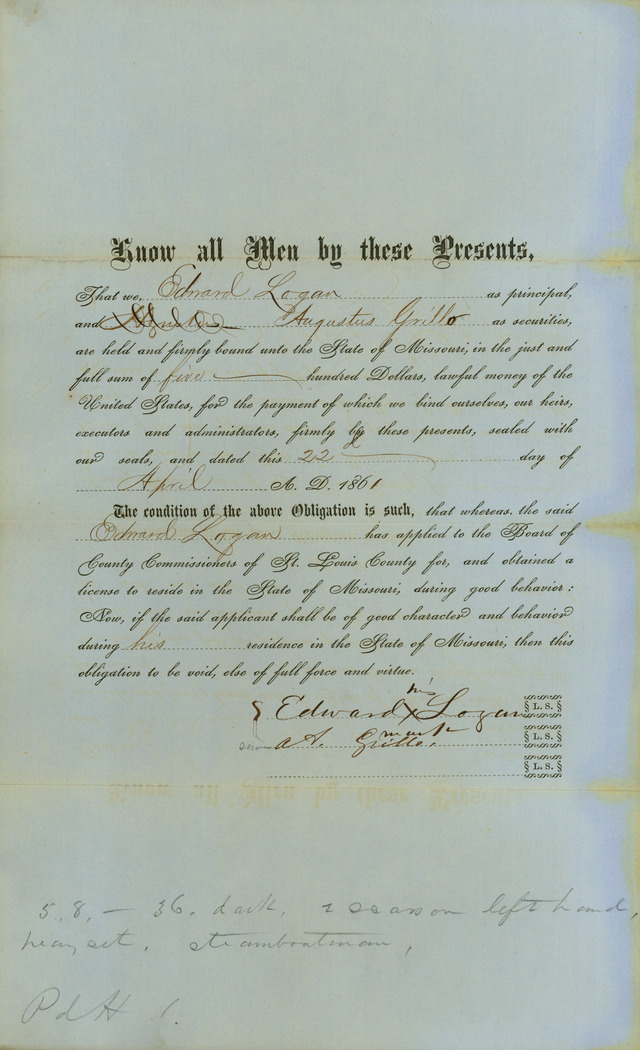 Know all Men by these Presents,
That we, Edward Logan as principal,
and Augustus Grillo as securities,
are held and firmly bound unto the State of Missouri, in the just and
full sum of five hundred Dollars, lawful money of the
United States, for the payment of which we bind ourselves, our heirs,
executors and administrators, firmly by these presents, sealed with
our seals, and dated this 22 day of
April A. D. 1861
The condition of the above Obligation is such, that whereas, the said
Edward Logan has applied to the Board of
County Commissioners of St. Louis County for, and obtained a
license to reside in the State of Missouri, during good behavior:
Now, if the said applicant shall be of good character and behavior
during his residence in the State of Missouri, then this
obligation to be void, else of full force and virtue.
his
Edward X Logan L. S.
mark
A. Grillo. L. S.
L. S.
5.8, — 36. dark, 2 scars on left hand,
heavy set, steamboatman,
Pd H 1.